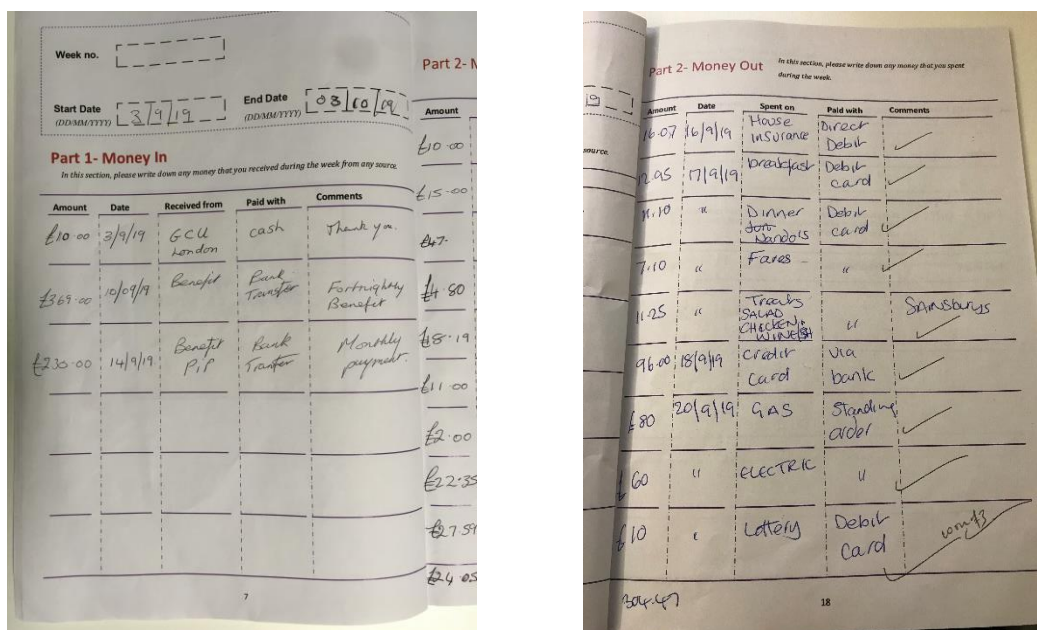 Week no.
Start Date 3/9/19 End Date 03/10/19
(DD/MM/YYYY) (DD/MM/YYYY)
Part 1- Money In
In this section, please write down any money that you received during the week from any source.
Amount Date Received from Paid with Comments
£10.00 3/9/19 GCU London cash Thank you.
£369.00 10/09/19 Benefit Bank Transfer Fortnightly Benefit
£230.00 14/9/19 Benefit PIP Bank Transfer Monthly payment
7
Part 2- M
Amount
£10.00
£15.00
£47.
£4.80
£18.19
£11.00
£2.00
£22.35
£27.59
£24.05
19
source.
Part 2- Money Out
In this section, please write down any money that you spent
during the week.
Amount Date Spent on Paid with Comments
16.07 16/9/19 House Insurance Direct Debit
12.95 17/9/19 breakfast Debit card
11.10 " Dinner Nando's Debit card
7.10 " Fares "
11.25 " SALAD CHICKEN + WINE " SAINSburys
96.00 18/9/19 credit card via bank
£80 20/9/19 GAS Standing order
£60 " ELECTRIC "
£10 " Lottery Debit card won £3
304.47
18